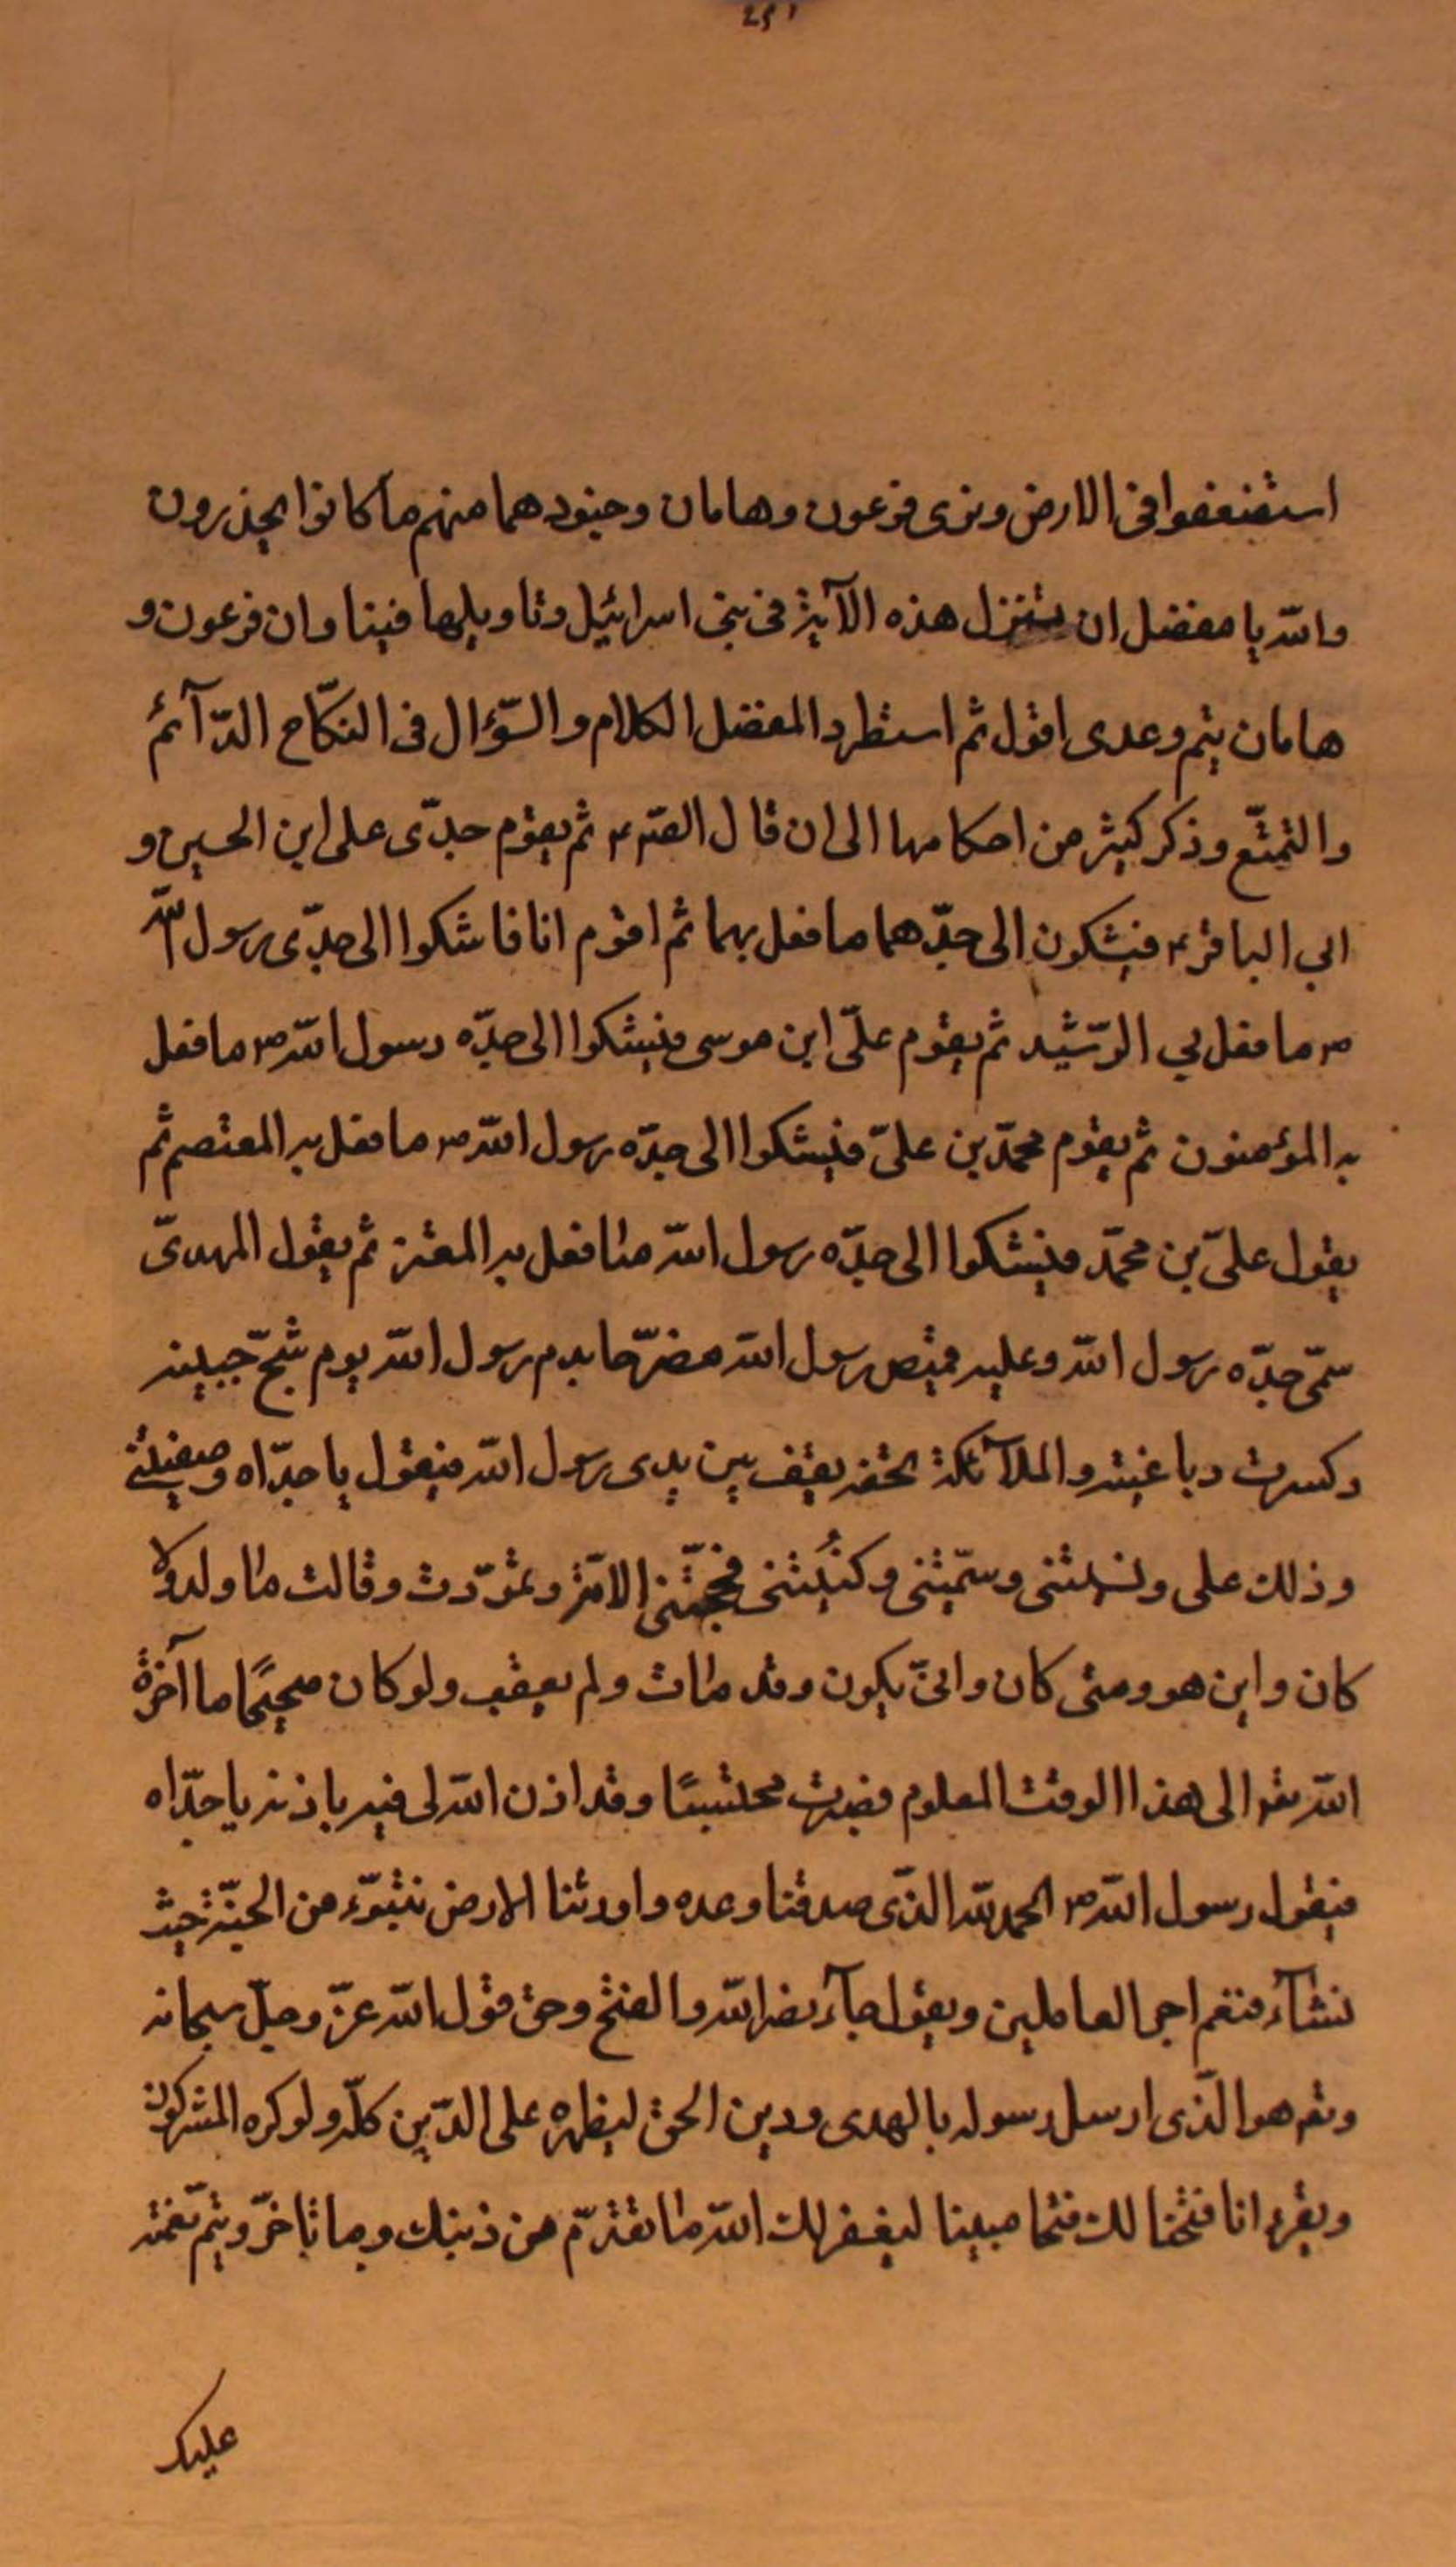 ٢٥١
استضعفوا فى الارض ونرى فرعون وهامان وجنودهما منهم ما كانوا يحذرون
والله يا مفضل ان تنزل هذه الآية فى بنى اسرائيل وتاويلها فينا وان فرعون و
هامان يتم وعدى اقول ثم استطرد المفضل الكلام والسّؤال فى النكّاح الدّآئم
والتمتّع وذكر كثير من احكامها الى ان قال الصّ ع ثم يقوم جدّى على ابن الحسين و
ابي الباقر ع فيشكون الى جدّهما ما فعل بهما ثم اقوم انا فاشكوا الى جدّى رسول الله
ص ما فعل بي الرّشيد ثم يقوم علىّ ابن موسى فيشكوا الى جدّه رسول الله ص ما فعل
به المؤمنون ثم يقوم محمّد بن علىّ فيشكوا الى جدّه رسول الله ص ما فعل به المعتصم ثم
يقول علىّ بن محمّد فيشكوا الى جدّه رسول الله ما فعل به المعتز ثم يقول المهدىّ
سمّى جدّه رسول الله وعليه قميص رسول الله مضرّحا بدم رسول الله يوم شجّ جبينه
وكسرت رباعيته والملآئكة تحفه يقف بين يدى رسول الله فيقول يا جدّاه وصفتنى
وذلك على ونسبتنى وسمّيتنى وكنُيتنى فجحّتنى الامّة وتموّدت وقالت ما ولد ولا
كان واين هو ومتى كان وانىّ يكون وقد مات ولم يعقب ولو كان صحيحًا ما آخرة
الله تع الى هذا الوقت المعلوم فصبرت محتسبًا وقد اذن الله لى فيه باذنه يا جدّاه
فيقول رسول الله ص الحمد لله الذّى صدقنا وعده واورثنا الارض نتبوّء من الجنّة حيث
نشآء فنعم اجر العاملين ويقول جآء نصر الله والفتح وحق قول الله عزّ وجلّ سبحانه
وتع هو الذّى ارسل رسوله بالهدى ودين الحق ليظهره على الدّين كلّه ولو كره المشركون
ويقرء انا فتحنا لك فتحا مبينا ليغفر لك الله ما تقدّم من ذنبك وما تاخّر ويتم نعمته
عليك